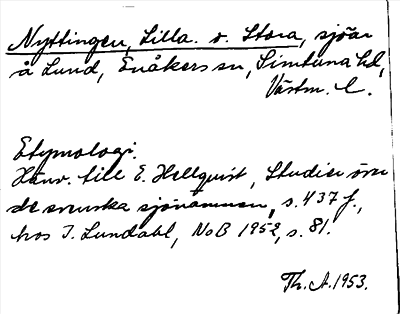 Nyttingen, Lilla o. Stora, sjöar
å Lund, Enåkers sn, Simtuna hd,
Västm. l.
Etymologi.
Hänv. till E. Hellquist, Studier över
de svenska sjönamnen, s. 437 f.,
hos I. Lundahl, NoB 1952, s. 81.
Th. A. 1953.